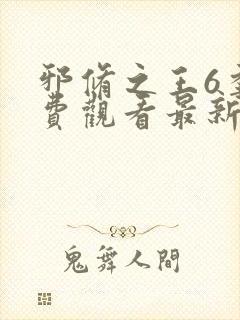 邪脩之王6
費觀看最新
鬼舞人間